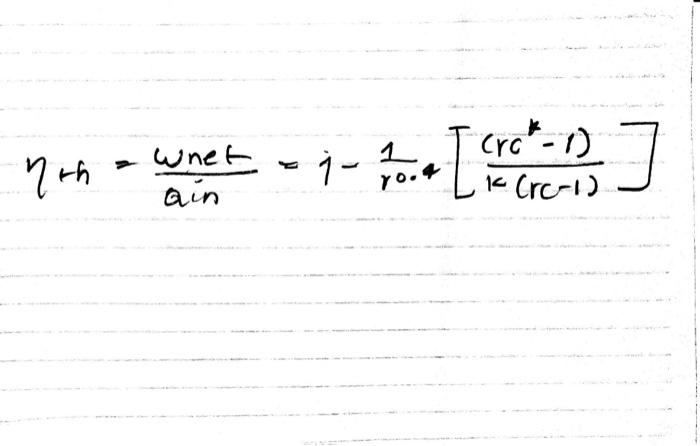 η th = wnet / Qin = 1 - 1 / r0.4 [ (rc^k - 1) / k (rc-1) ]